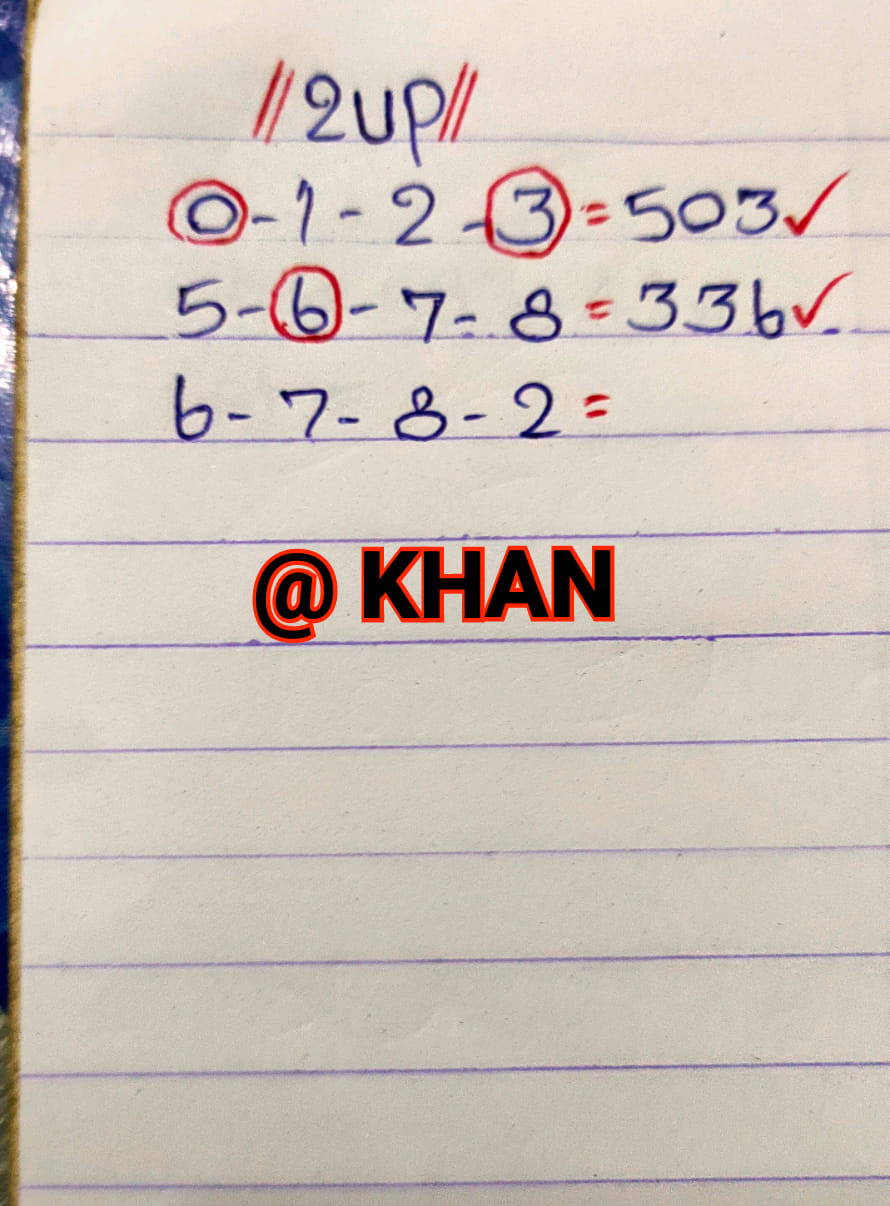 //2up//
0-1-2-3=503✓
5-6-7-8=336✓
6-7-8-2=
@ KHAN